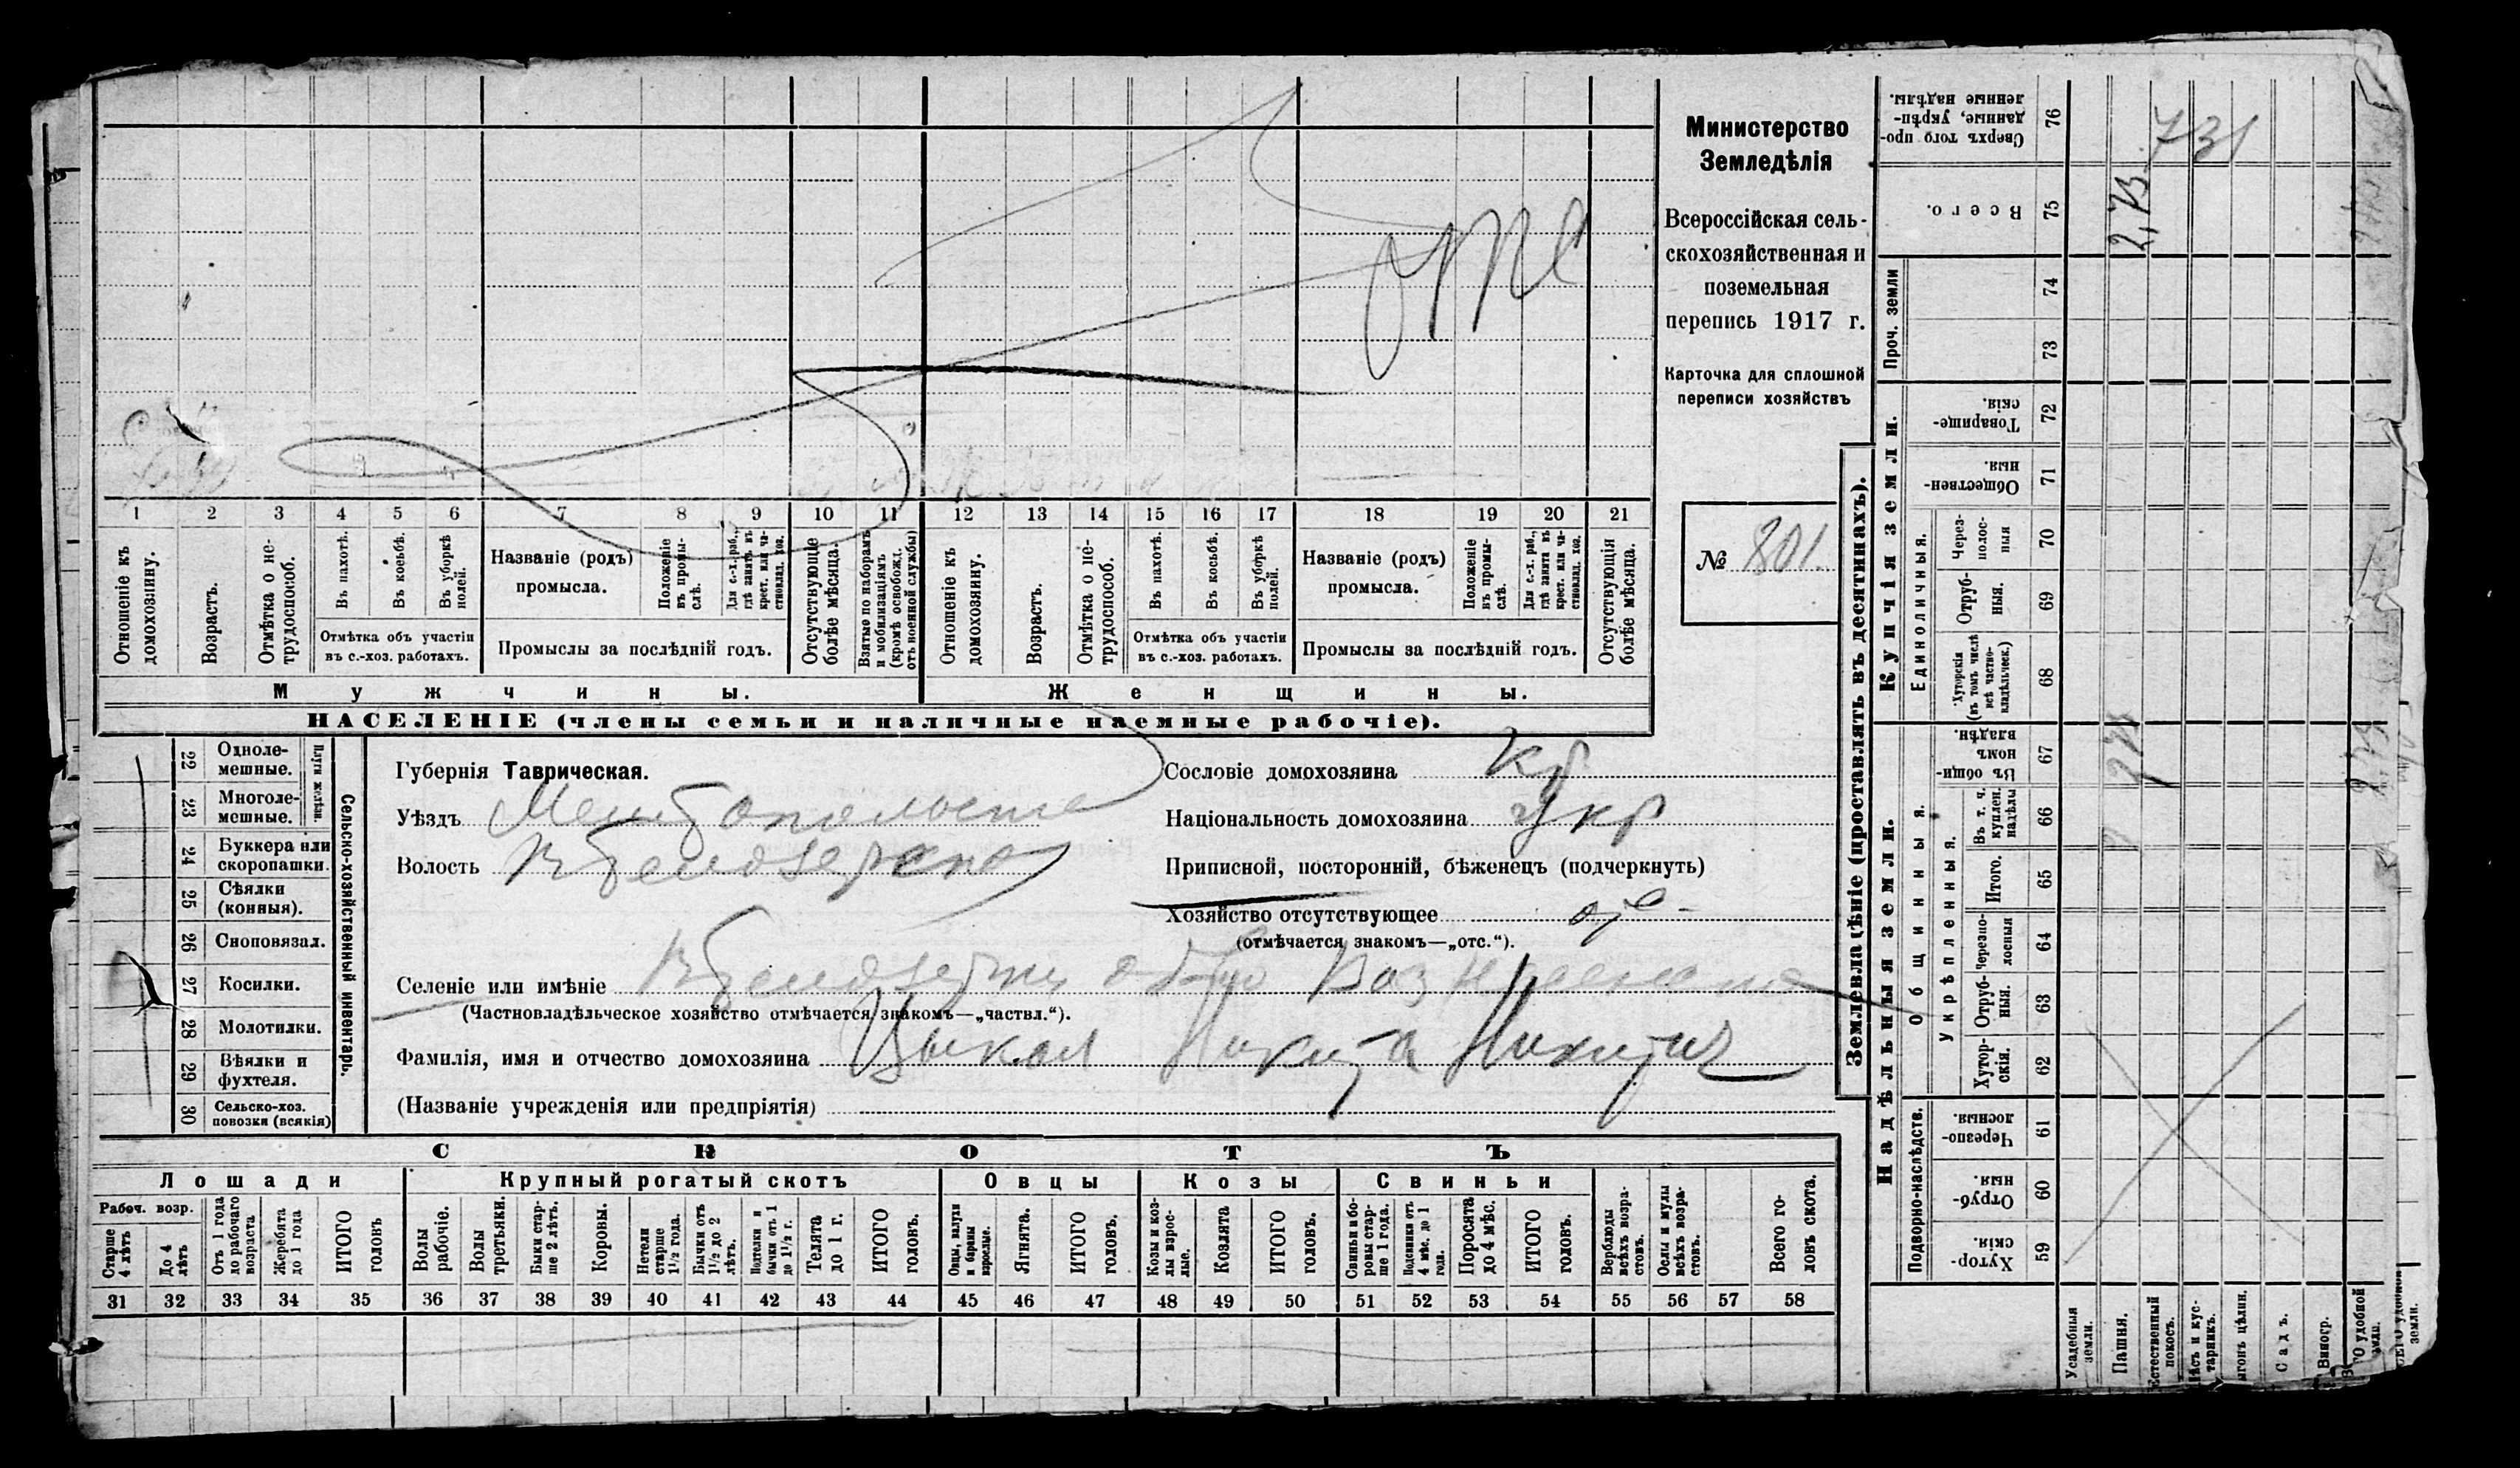 отс
1 2 3 4 5 6 7 8 9 10 11 12 13 14 15 16 17 18 19 20 21
Отношеніе къ домохозяину.
Возрастъ.
Отмѣтка о нетрудоспособ.
Въ пахотѣ.
Въ косьбѣ.
Въ уборкѣ полей.
Отмѣтка объ участіи
въ с.-хоз. работахъ.
Названіе (родъ)
промысла.
Положеніе въ промыслѣ.
Для с.-х. раб., гдѣ занятъ въ крест. или частновлад. хоз.
Промыслы за послѣдній годъ.
Отсутствующіе болѣе мѣсяца.
Взятые по наборамъ и мобилизаціямъ (кромѣ освобожд. отъ военной службы)
Отношеніе къ домохозяину.
Возрастъ.
Отмѣтка о нетрудоспособ.
Въ пахотѣ.
Въ косьбѣ.
Въ уборкѣ полей.
Отмѣтка объ участіи
въ с.-хоз. работахъ.
Названіе (родъ)
промысла.
Положеніе въ промыслѣ.
Для с.-х. раб., гдѣ занята въ крест. или частновлад. хоз.
Промыслы за послѣдній годъ.
Отсутствующія болѣе мѣсяца.
Мужчины.
Женщины.
НАСЕЛЕНІЕ (члены семьи и наличные наемные рабочіе).
Министерство
Земледѣлія
Всероссійская сель-
скохозяйственная и
поземельная
перепись 1917 г.
Карточка для сплошной
переписи хозяйствъ
№ 801.
22 Одноле-
мешные.
23 Многоле-
мешные.
Плуги желѣзн.
24 Буккера или
скоропашки.
25 Сѣялки
(конныя).
26 Сноповязал.
27 Косилки.
28 Молотилки.
29 Вѣялки и
фухтеля.
30 Сельско-хоз.
повозки (всякія)
Сельско-хозяйственный инвентарь.
Губернія Таврическая.
Уѣздъ
Волость
Сословіе домохозяина кр
Національность домохозяина укр
Приписной, посторонній, бѣженецъ (подчеркнуть)
Хозяйство отсутствующее отс
(отмѣчается знакомъ—„отс.“).
Селеніе или имѣніе
(Частновладѣльческое хозяйство отмѣчается знакомъ—„частвл.“).
Фамилія, имя и отчество домохозяина Цыкал Никита Никитич
(Названіе учрежденія или предпріятія)
СКОТЪ
Лошади
Крупный рогатый скотъ
Овцы
Козы
Свиньи
Рабоч. возр.
Старше 4 лѣтъ
До 4 лѣтъ
Отъ 1 года до рабочаго возраста
Жеребята до 1 года
ИТОГО головъ
Волы рабочіе.
Волы третьяки.
Быки старше 2 лѣтъ.
Коровы.
Нетели старше 1½ года.
Бычки отъ 1½ до 2 лѣтъ.
Подтелки и бычки отъ 1 до 1½ г.
Телята до 1 г.
ИТОГО головъ.
Овцы, валухи и бараны взрослые.
Ягнята.
ИТОГО головъ.
Козы и козлы взрослые.
Козлята
ИТОГО головъ.
Свиньи и боровы старше 1 года.
Подсвинки отъ 4 мѣс. до 1 года.
Поросята до 4 мѣс.
ИТОГО головъ.
Верблюды всѣхъ возрастовъ.
Ослы и мулы всѣхъ возрастовъ.
Всего головъ скота.
31 32 33 34 35 36 37 38 39 40 41 42 43 44 45 46 47 48 49 50 51 52 53 54 55 56 57 58
Землевладѣніе (проставлять въ десятинахъ).
Купчія земли.
Надѣльныя земли.
Проч. земли
Единоличныя.
Общинныя.
Укрѣпленныя.
Подворно-наслѣдств.
Сверхъ того проданные, укрѣпленные надѣлы. 76
731
Всего. 75
2,73
74
73
Товарищескія. 72
Общественныя. 71
Черезполосныя 70
Отрубныя. 69
Хуторскія (въ томъ числѣ всѣ частновладѣльческ.) 68
Въ общинномъ владѣн. 67
Въ т. ч. куплен. надѣлы 66
Итого. 65
Черезполосныя 64
Отрубныя. 63
Хуторскія. 62
Черезполосныя. 61
Отрубныя 60
Хуторскія. 59
Усадебныя земли.
Пашня.
Естественный покосъ.
Лѣсъ и кустарникъ.
ыгонъ цѣлин.
Садъ.
Виногр.
го удобной земли.
земли.